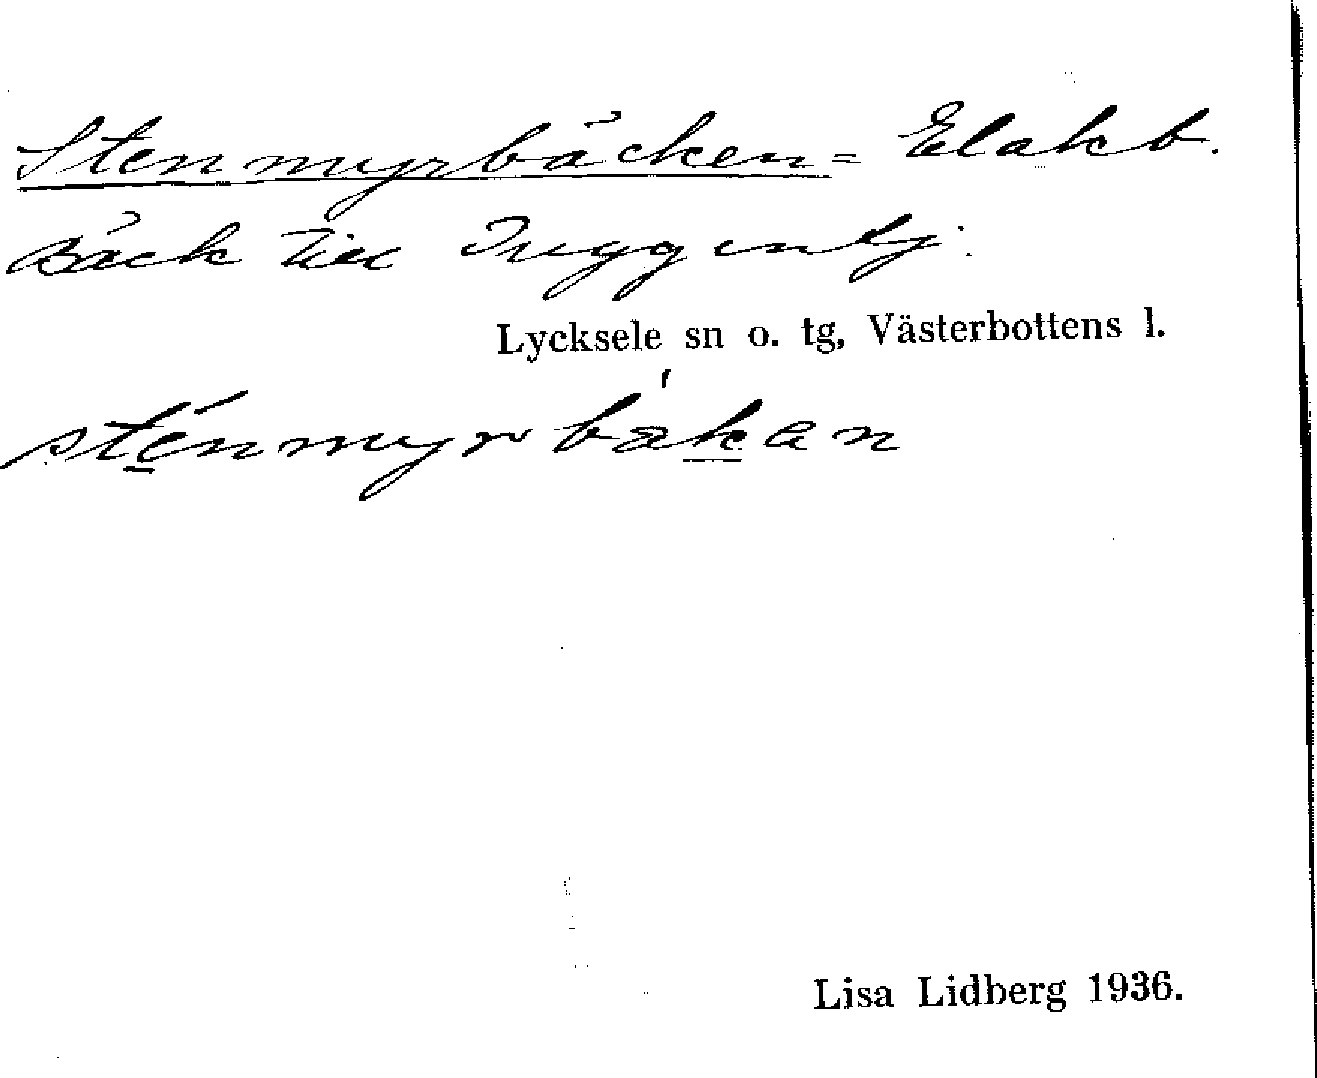 Stenmyrbäcken = Elakb.
Bäck till
Lycksele sn o. tg, Västerbottens l.
sténmyrbäkan
Lisa Lidberg 1936.